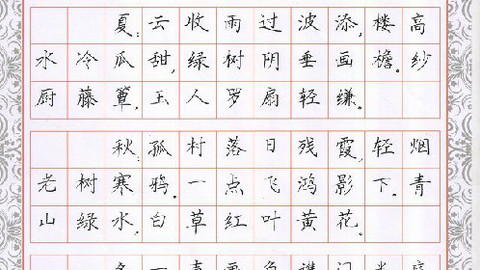 夏:云收雨过波添,楼高
水冷瓜甜,绿树阴垂画檐。纱
厨藤簟,玉人罗扇轻缣。
秋:孤村落日残霞,轻烟
老树寒鸦。一点飞鸿影下。青
山绿水,白草红叶黄花。